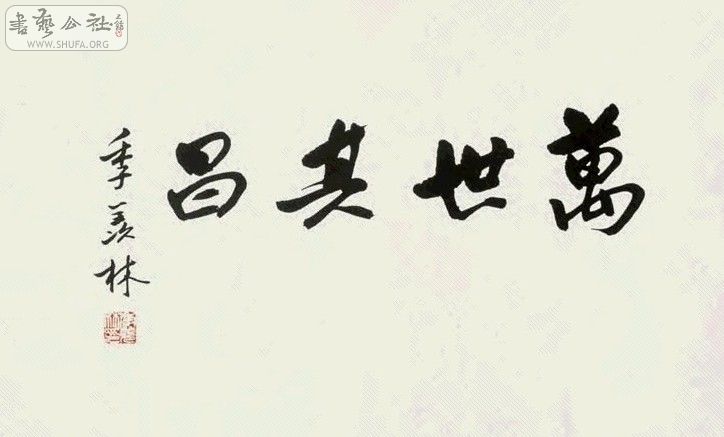 書藝公社
WWW.SHUFA.ORG
萬世其昌
季羨林